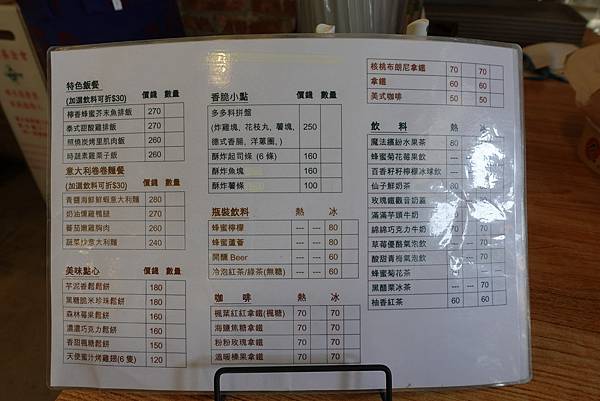 特色飯餐 價錢 數量
(加選飲料可折$30)
檸香蜂蜜芥末魚排飯 270
泰式甜酸雞排飯 270
照燒炭烤里肌肉飯 270
時蔬素雞栗子飯 260
意大利卷卷麵餐
(加選飲料可折$30) 價錢 數量
青醬海鮮鮮蝦意大利麵 280
奶油燻雞鴨腿 270
蕃茄嫩雞胸肉 260
蔬菜炒意大利麵 240
美味點心 價錢 數量
芋泥香鬆鬆餅 180
黑糖脆米珍珠鬆餅 180
森林莓果鬆餅 160
濃濃巧克力鬆餅 160
香甜楓糖鬆餅 150
天使蜜汁烤雞翅(6隻) 120
香脆小點 價錢 數量
多多料拼盤
(炸雞塊, 花枝丸, 薯塊, 250
德式香腸, 洋蔥圈, )
酥炸起司條 (6 條) 160
酥炸魚塊 160
酥炸薯條 100
瓶裝飲料 熱 冰
蜂蜜檸檬 --- --- 80
蜂蜜蘆薈 --- --- 80
開釀 Beer --- --- 60
冷泡紅茶/綠茶(無糖) --- --- 60
咖 啡 熱 冰
楓葉紅紅拿鐵(楓糖) 70 70
海鹽焦糖拿鐵 70 70
粉粉玫瑰拿鐵 70 70
溫暖榛果拿鐵 70 70
核桃布朗尼拿鐵 70 70
拿鐵 60 60
美式咖啡 50 50
飲 料 熱 冰
魔法繽紛水果茶 80
蜂蜜菊花莓果飲
百香籽籽檸檬冰球飲
仙子鮮奶茶
玫瑰鐵觀音奶蓋
滿滿芋頭牛奶
綿綿巧克力牛奶 70 70
草莓優酪氣泡飲
酸甜青梅氣泡飲
蜂蜜菊花茶
黑醋栗冰茶
柚香紅茶 60 60